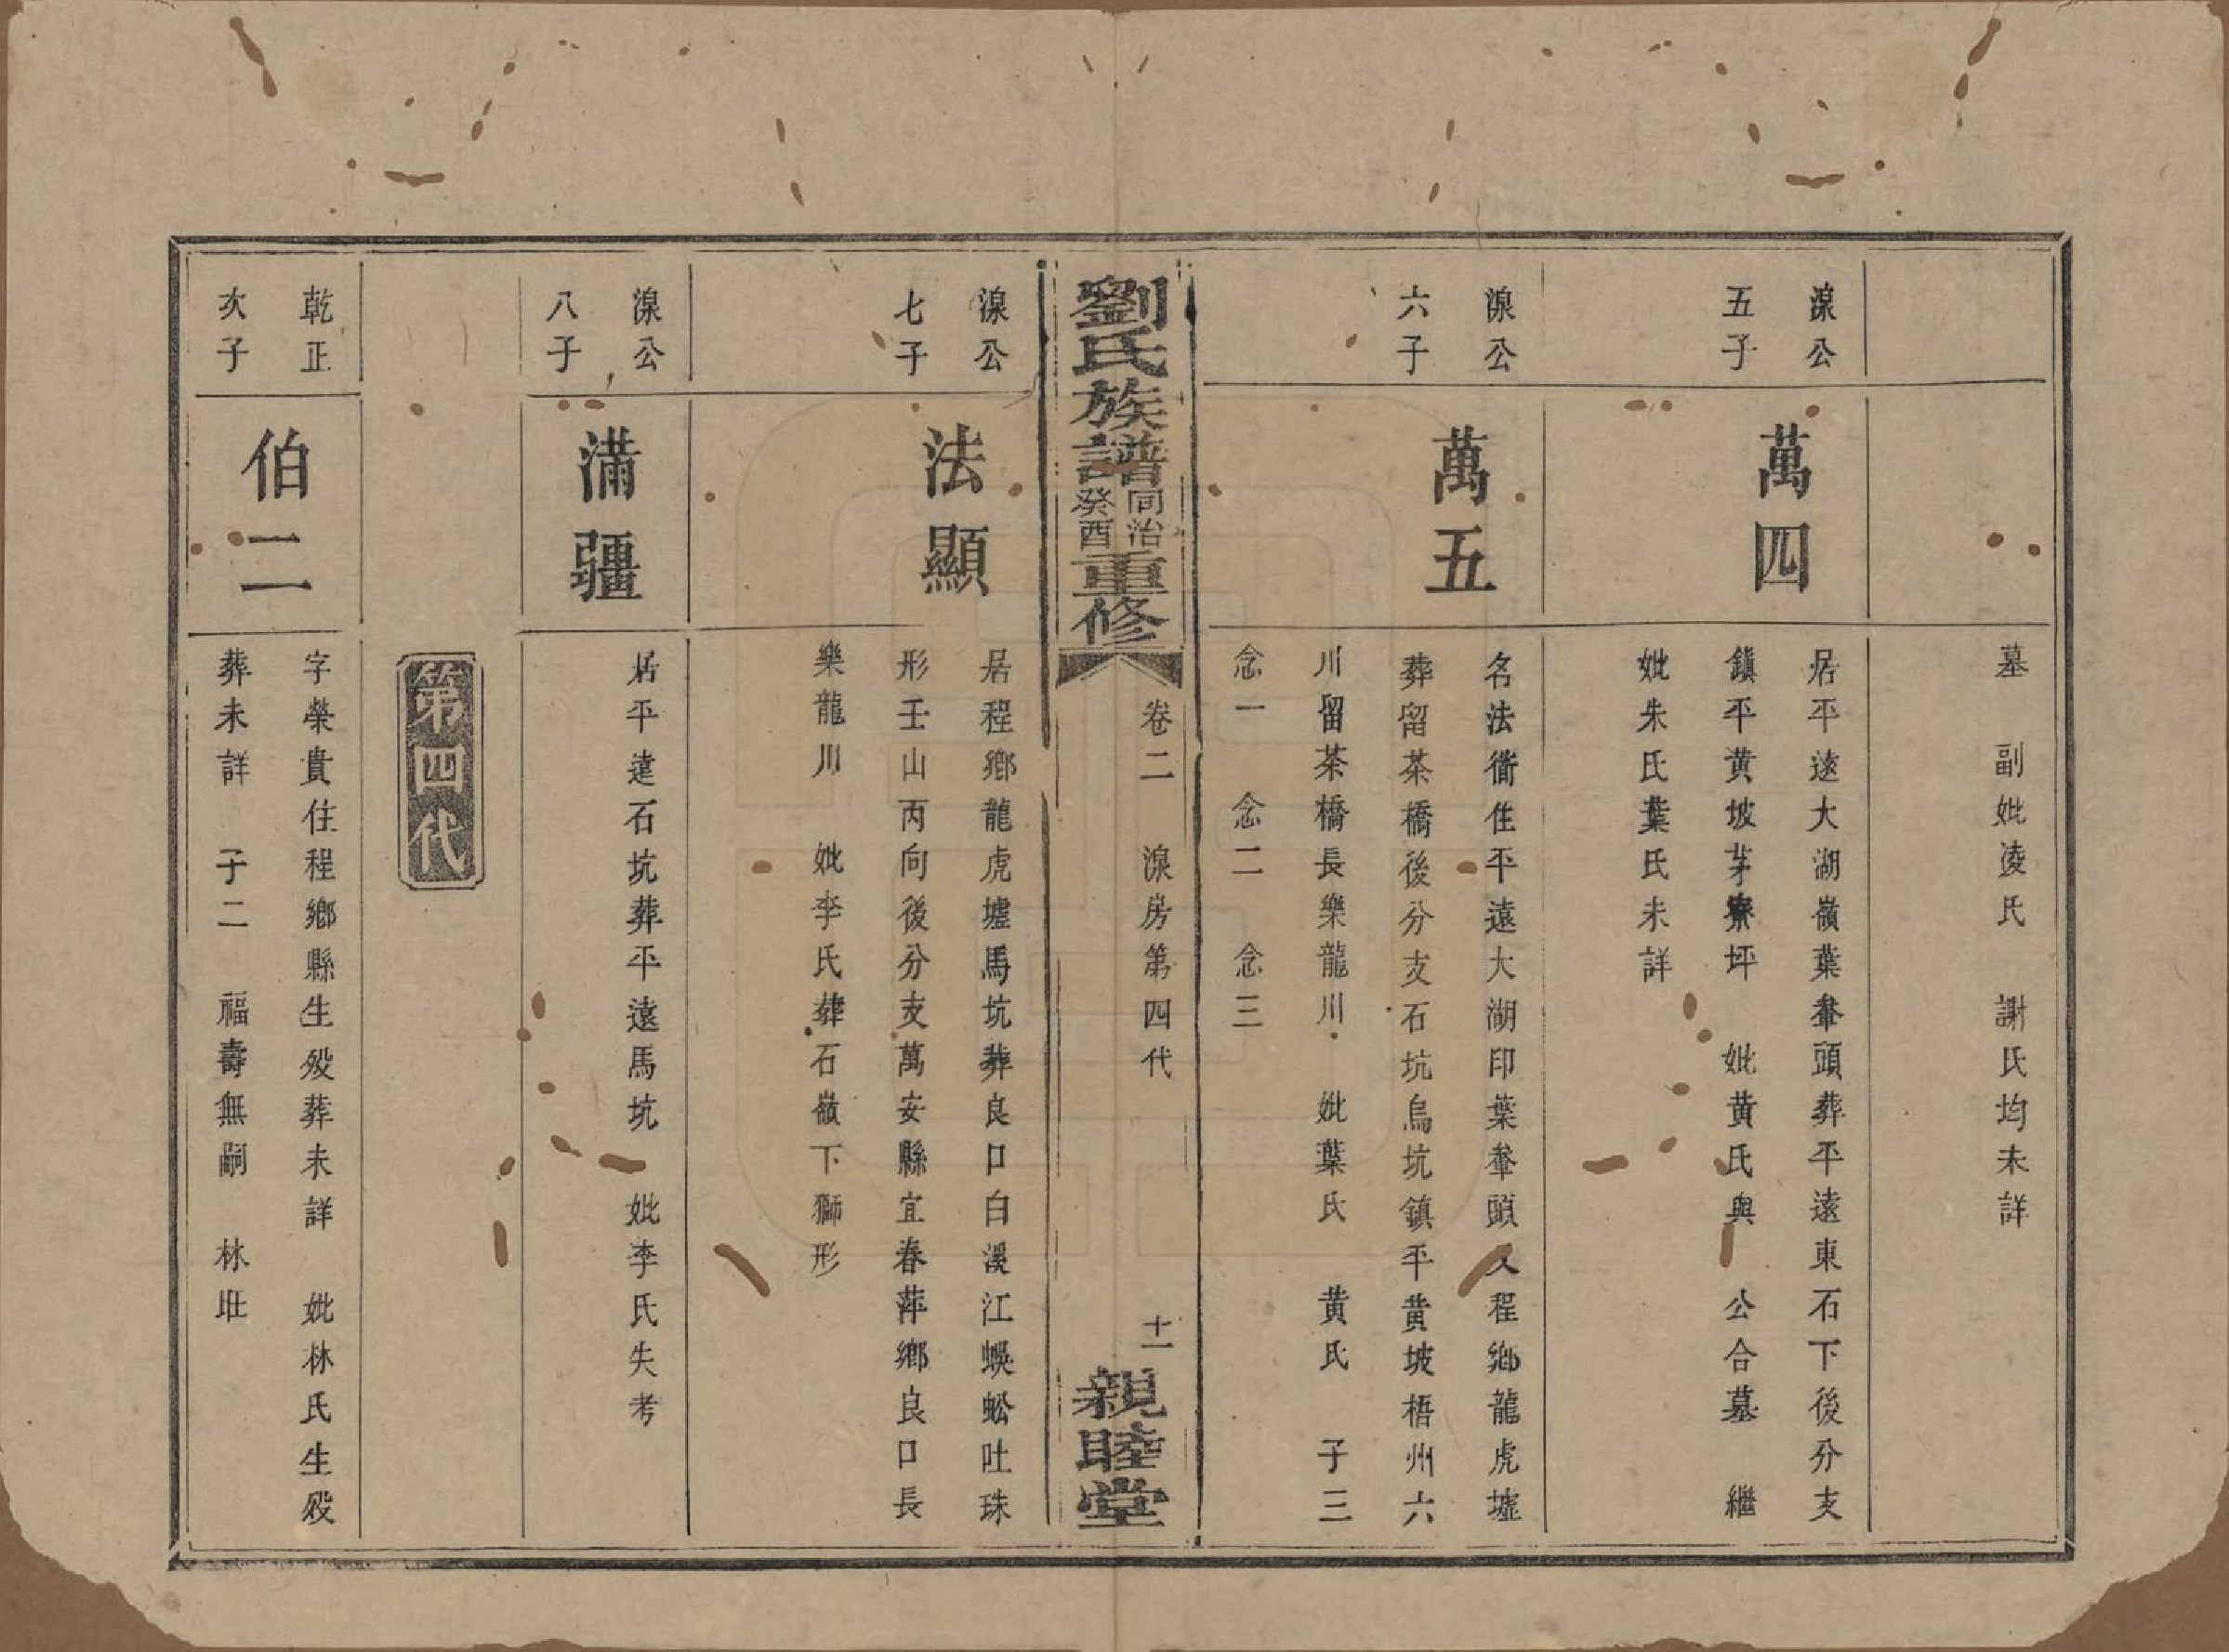 墓 副妣凌氏 謝氏均未詳
湶公
五子
萬四
居平遠大湖嶺葉輋頭葬平遠東石下後分支
鎮平黄坡茅寮坪 妣黄氏與 公合墓 繼
妣朱氏葉氏未詳
湶公
六子
萬五
名法衙住平遠大湖印葉輋頭又程鄉龍虎墟
葬留茶橋後分支石坑烏坑鎮平黄坡梧州六
川留茶橋長樂龍川 妣葉氏 黄氏 子三
念一 念二 念三
劉氏族譜
同治
癸酉
重修
卷二 湶房第四代 十一
親睦堂
湶公
七子
法顯
居程鄉龍虎墟馬坑葬良口白溪江蜈蚣吐珠
形壬山丙向後分支萬安縣宜春萍鄉良口長
樂龍川 妣李氏葬石嶺下獅形
湶公
八子
滿疆
居平遠石坑葬平遠馬坑 妣李氏失考
第四代
乾正
次子
伯二
字榮貴住程鄉縣生殁葬未詳 妣林氏生殁
葬未詳 子二 福壽無嗣 林